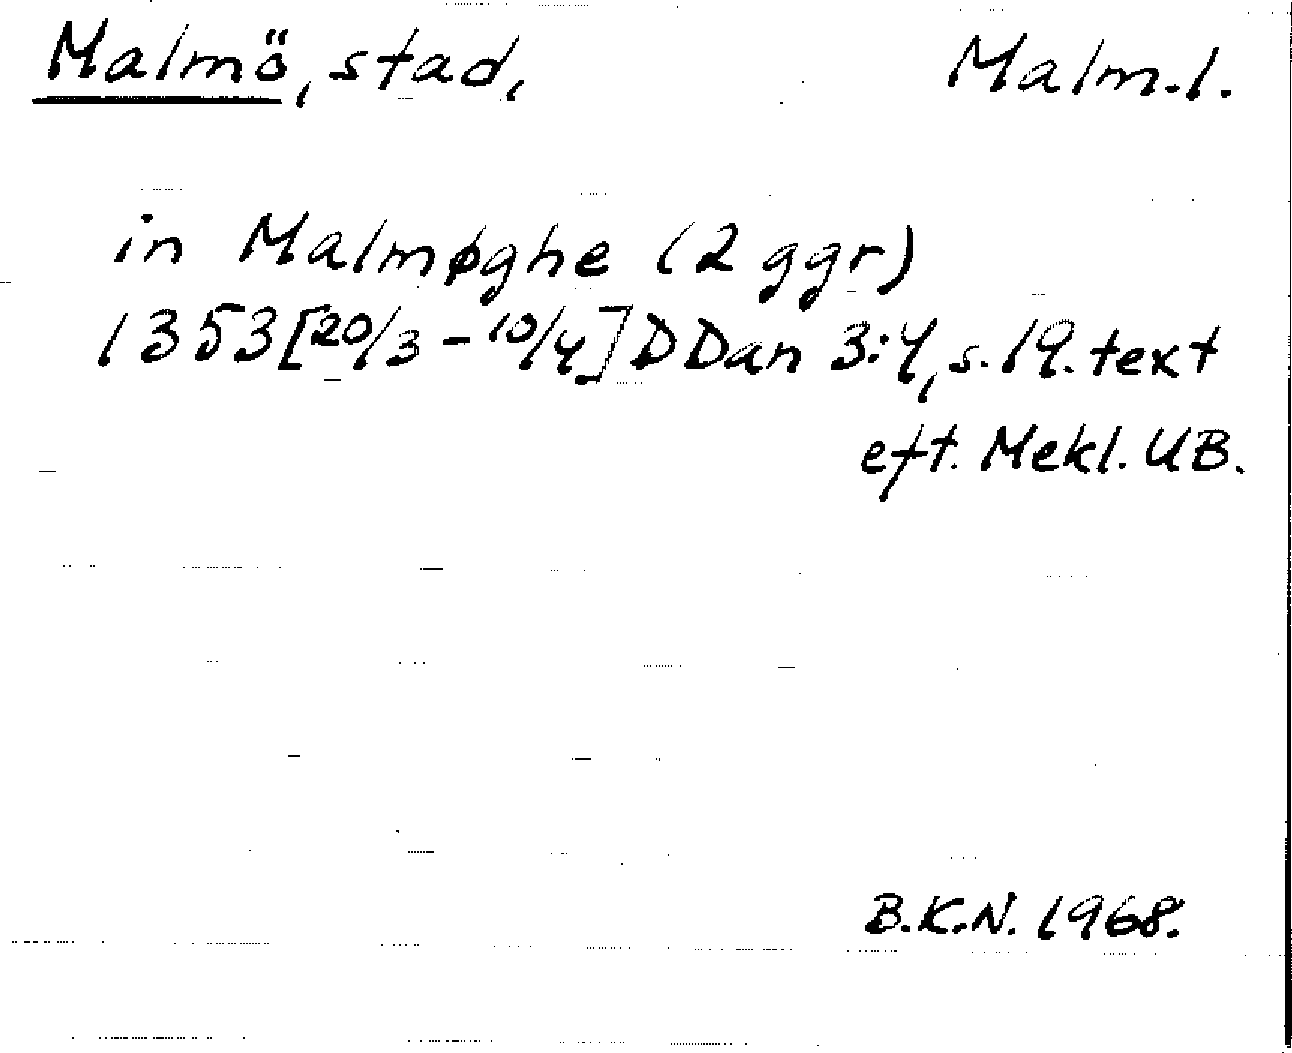 Malmö, stad, Malm.l.
in Malmøghe (2 ggr)
1353 [20/3 - 10/4] DDan 3:4, s. 19. text
eft. Mekl. UB.
B.K.N. 1968.